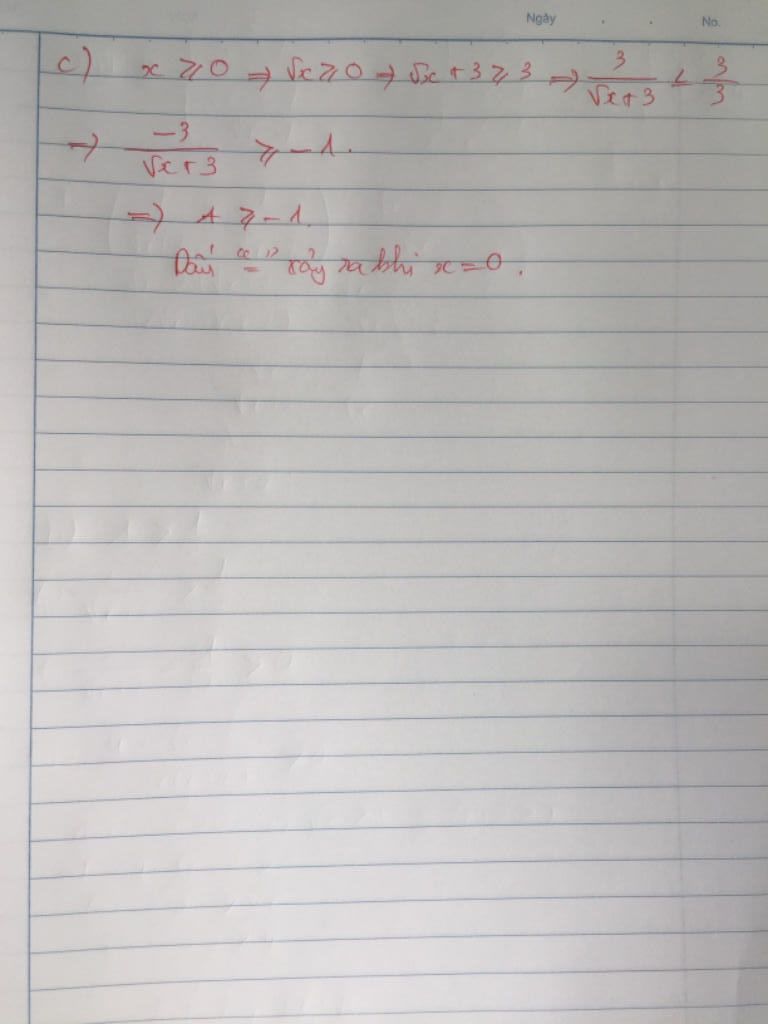 Ngày . . No.
c) x ⩾ 0 ⇒ √x ⩾ 0 ⇒ √x + 3 ⩾ 3 ⇒ 3/(√x + 3) ≤ 3/3
⇒ -3/(√x + 3) ⩾ -1.
⇒ A ⩾ -1.
Dấu "=" xảy ra khi x = 0.